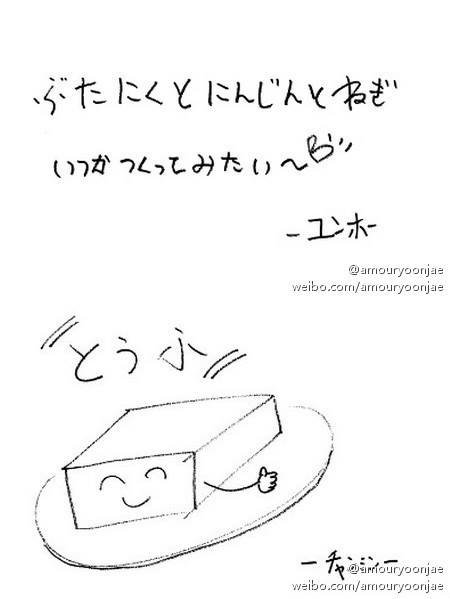 ぶたにくとにんじんとねぎ
いつかつくってみたい〜
-ユンホー
@amouryoonjae
weibo.com/amouryoonjae
とうふ
-チャンミン-
@amouryoonjae
weibo.com/amouryoonjae